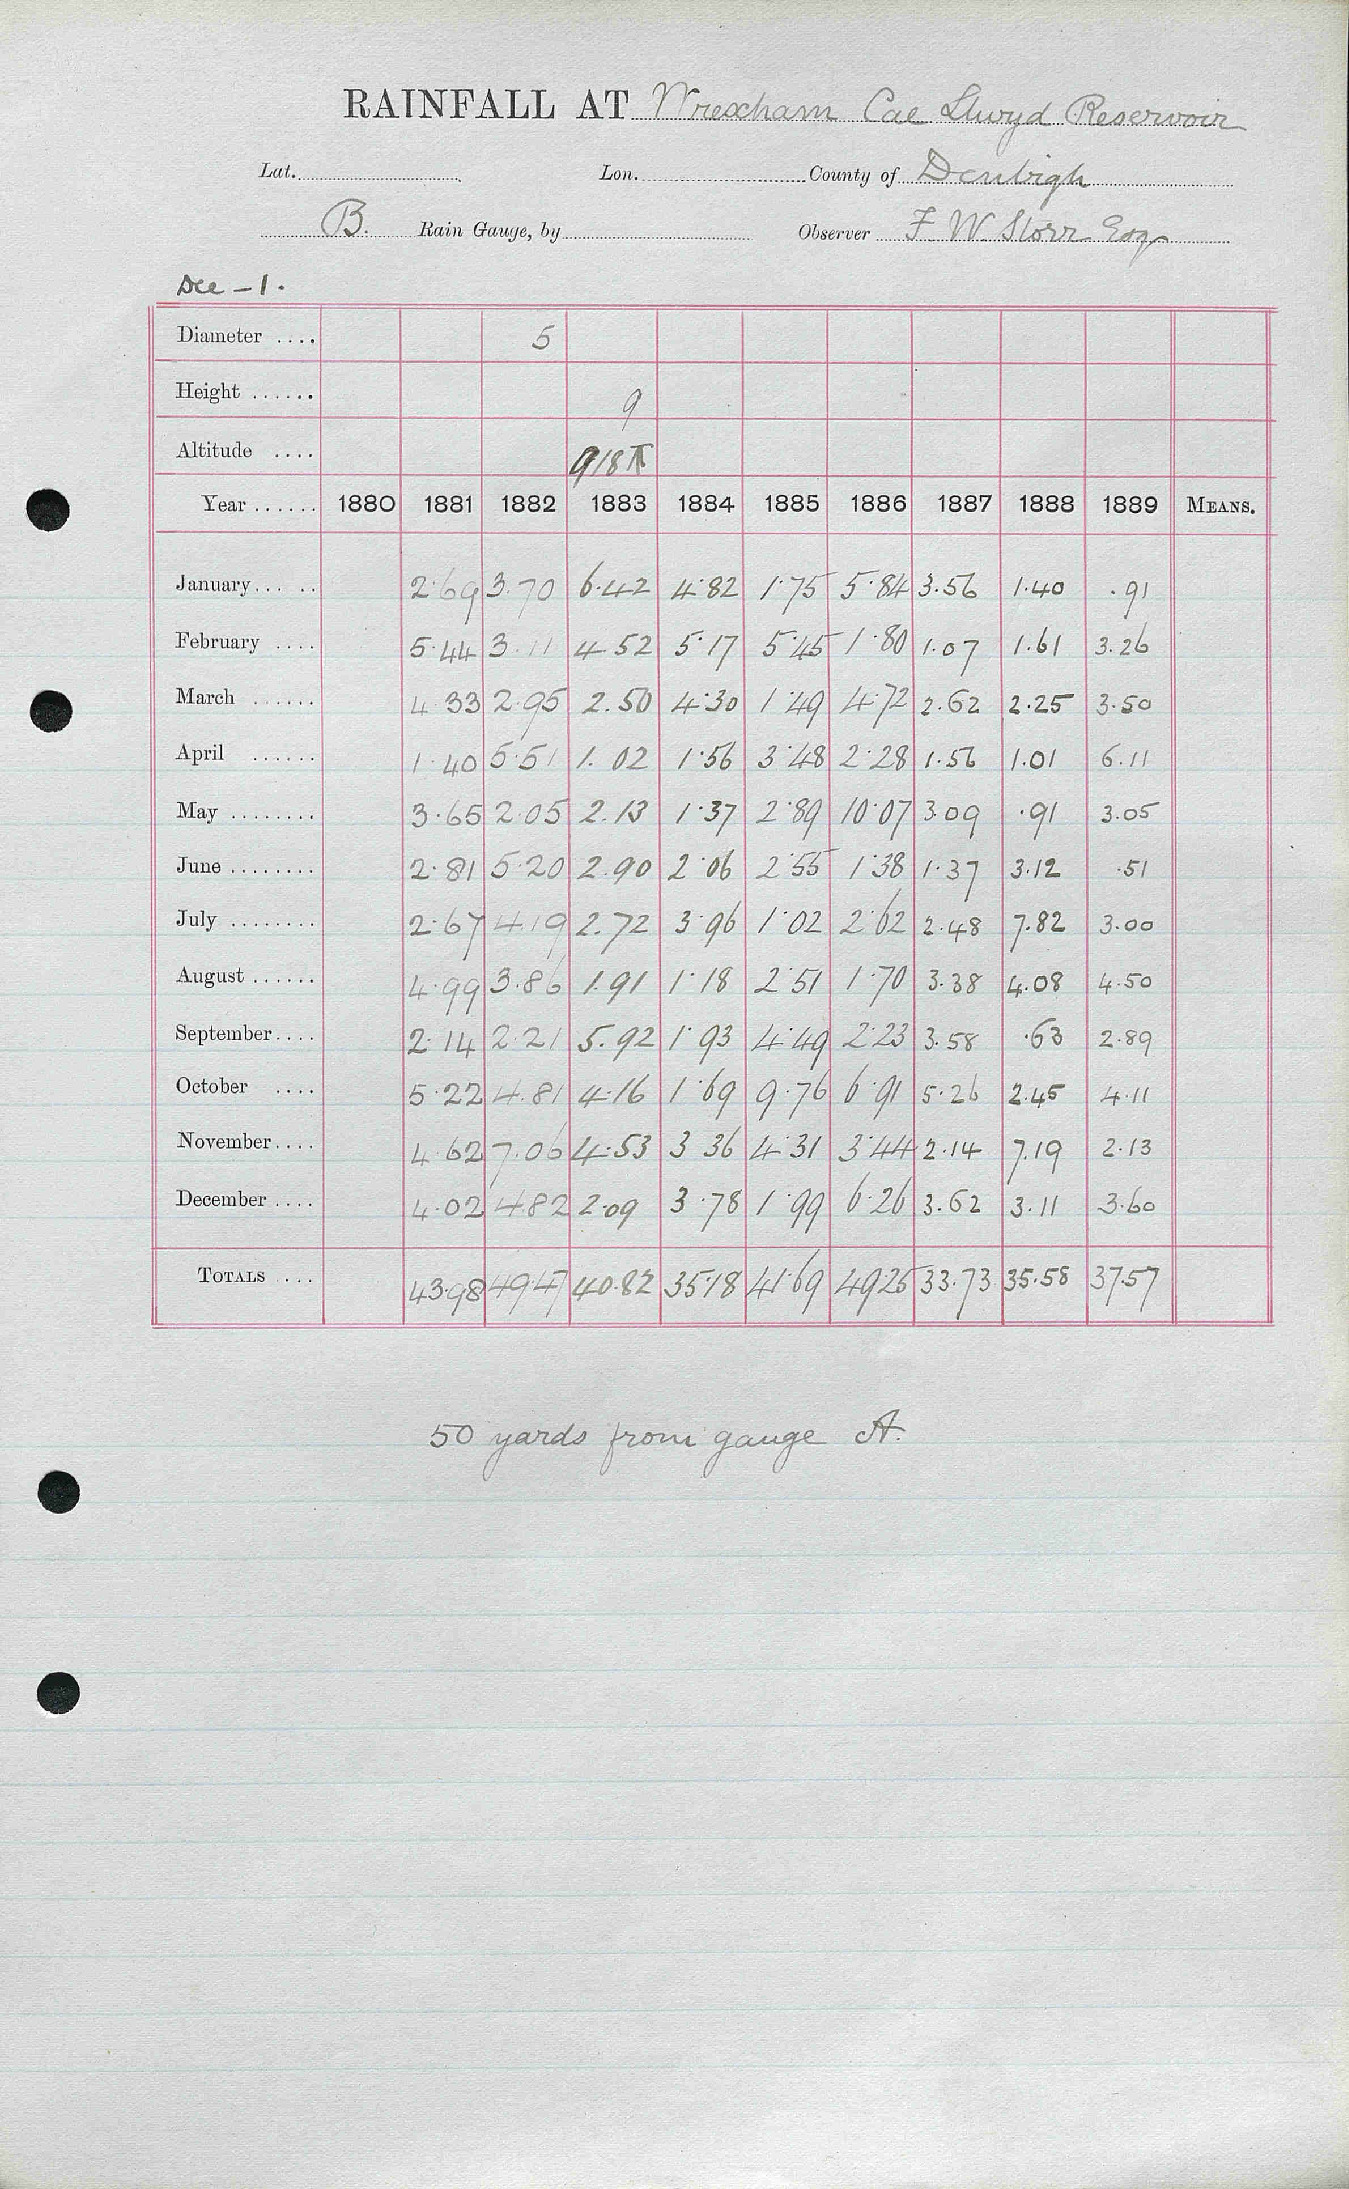 RAINFALL AT Wrexham Cae Llwyd Reservoir
Lat. Lon. County of Denbigh
B. Rain Gauge, by Observer F W Storr Esq
Dee - 1.
Diameter .... 5
Height ...... 9
Altitude .... 918 T
Year ...... 1880 1881 1882 1883 1884 1885 1886 1887 1888 1889 MEANS.
January... .. 2.69 3.70 6.42 4.82 1.75 5.84 3.56 1.40 .91
February .... 5.44 3.11 4.52 5.17 5.45 1.80 1.07 1.61 3.26
March ...... 4.33 2.95 2.50 4.30 1.49 4.72 2.62 2.25 3.50
April ...... 1.40 5.51 1.02 1.56 3.48 2.28 1.56 1.01 6.11
May ........ 3.65 2.05 2.13 1.37 2.89 10.07 3.09 .91 3.05
June ........ 2.81 5.20 2.90 2.06 2.55 1.38 1.37 3.12 .51
July ........ 2.67 4.19 2.72 3.96 1.02 2.62 2.48 7.82 3.00
August ...... 4.99 3.86 1.91 1.18 2.51 1.70 3.38 4.08 4.50
September.... 2.14 2.21 5.92 1.93 4.49 2.23 3.58 .63 2.89
October .... 5.22 4.81 4.16 1.69 9.76 6.91 5.26 2.45 4.11
November.... 4.62 7.06 4.53 3.36 4.31 3.44 2.14 7.19 2.13
December .... 4.02 4.82 2.09 3.78 1.99 6.26 3.62 3.11 3.60
TOTALS .... 43.98 49.47 40.82 35.18 41.69 49.25 33.73 35.58 37.57
50 yards from gauge A.